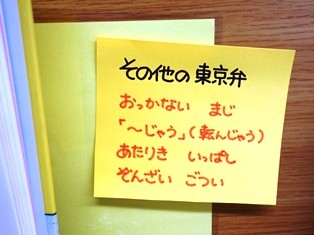 その他の東京弁
おっかない まじ
「〜じゃう」(転んじゃう)
あたりき いっぱし
ぞんざい ごつい